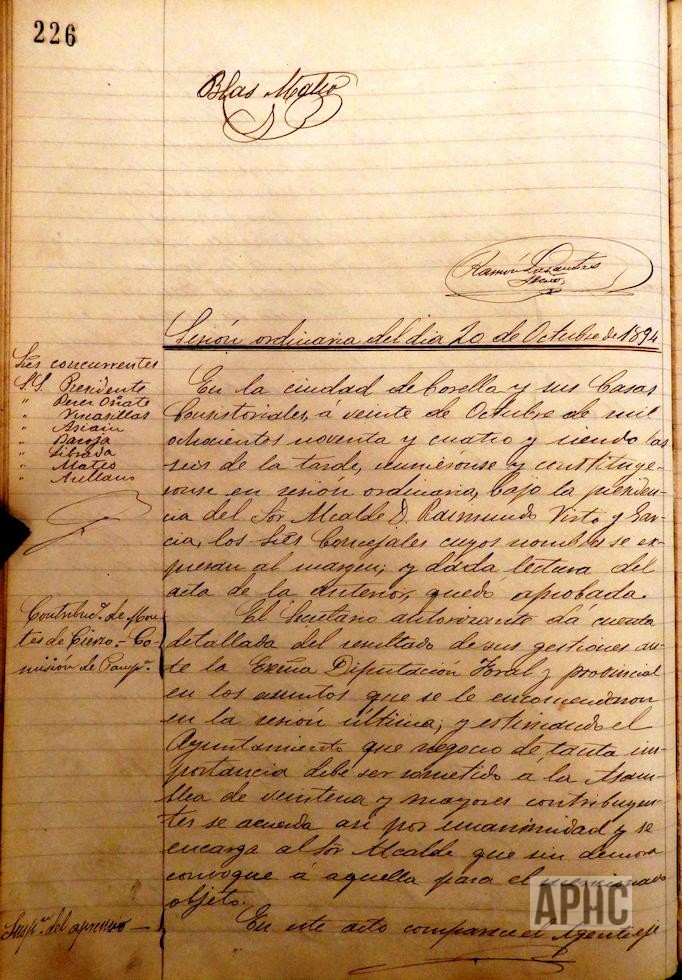 226
Blas Mateo
Ramón
Srio
Sesión ordinaria del dia 20 de Octubre de 1894
Sres concurrentes
S.S. Presidente
" Perez Oñate
" Virasillas
" Asiain
" Baroja
" Librada
" Mateo
" Arellano
En la ciudad de Corella y sus Casas
Consistoriales, á veinte de Octubre de mil
ochocientos noventa y cuatro y siendo las
seis de la tarde, reuniéronse y constituye-
ronse en sesión ordinaria, bajo la presiden-
cia del Sor Alcalde D. Raimundo Virto y Gar-
cia, los Sres Concejales cuyos nombres se ex-
presan al margen; y dada lectura del
acta de la anterior, quedó aprobada.
Contribucn. de Mon-
tes de Cierzo.- Co-
misión de Pampa.
El Secretario autorizante dá cuenta
detallada del resultado de sus gestiones an-
te la Exma Diputación Foral y provincial
en los asuntos que se le encomendaron
en la sesión última; y estimando el
Ayuntamiento que negocio de tanta im-
portancia debe ser sometido á la Asam-
blea de veintena y mayores contribuyen-
tes se acuerda asi por unanimidad y se
encarga al Sor Alcalde que sin demora
convoque á aquella para el mencionado
objeto.
Suspn. del apremio —
En este acto comparece el Agente eje
APHC